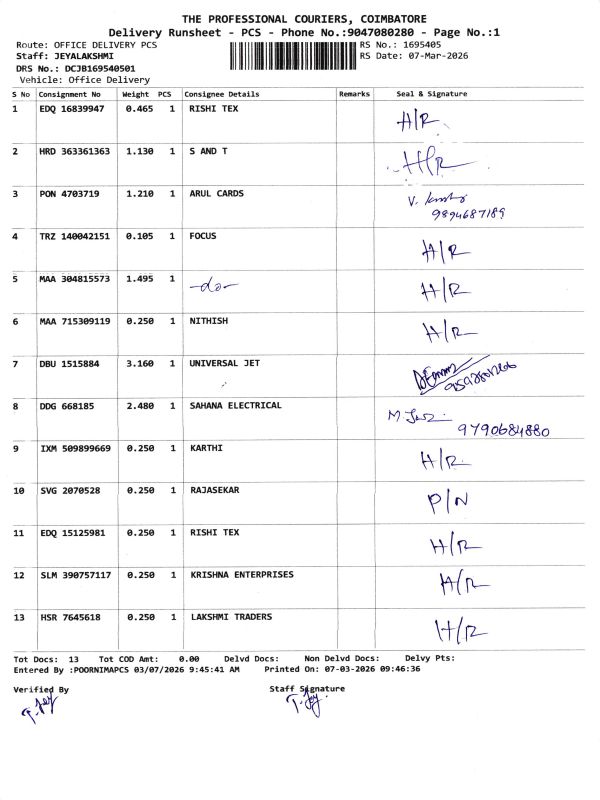 THE PROFESSIONAL COURIERS, COIMBATORE
Delivery Runsheet - PCS - Phone No.:9047080280 - Page No.:1
Route: OFFICE DELIVERY PCS RS No.: 1695405
Staff: JEYALAKSHMI RS Date: 07-Mar-2026
DRS No.: DCJB169540501
Vehicle: Office Delivery
S No Consignment No Weight PCS Consignee Details Remarks Seal & Signature
1 EDQ 16839947 0.465 1 RISHI TEX H/R
2 HRD 363361363 1.130 1 S AND T H/R
3 PON 4703719 1.210 1 ARUL CARDS V.
9894687189
4 TRZ 140042151 0.105 1 FOCUS H/R
5 MAA 304815573 1.495 1 -do- H/R
6 MAA 715309119 0.250 1 NITHISH H/R
7 DBU 1515884 3.160 1 UNIVERSAL JET
8 DDG 668185 2.480 1 SAHANA ELECTRICAL M.
9790684880
9 IXM 509899669 0.250 1 KARTHI H/R
10 SVG 2070528 0.250 1 RAJASEKAR P/N
11 EDQ 15125981 0.250 1 RISHI TEX H/R
12 SLM 390757117 0.250 1 KRISHNA ENTERPRISES H/R
13 HSR 7645618 0.250 1 LAKSHMI TRADERS H/R
Tot Docs: 13 Tot COD Amt: 0.00 Delvd Docs: Non Delvd Docs: Delvy Pts:
Entered By :POORNIMAPCS 03/07/2026 9:45:41 AM Printed On: 07-03-2026 09:46:36
Verified By Staff Signature
T. Jey T. Jey